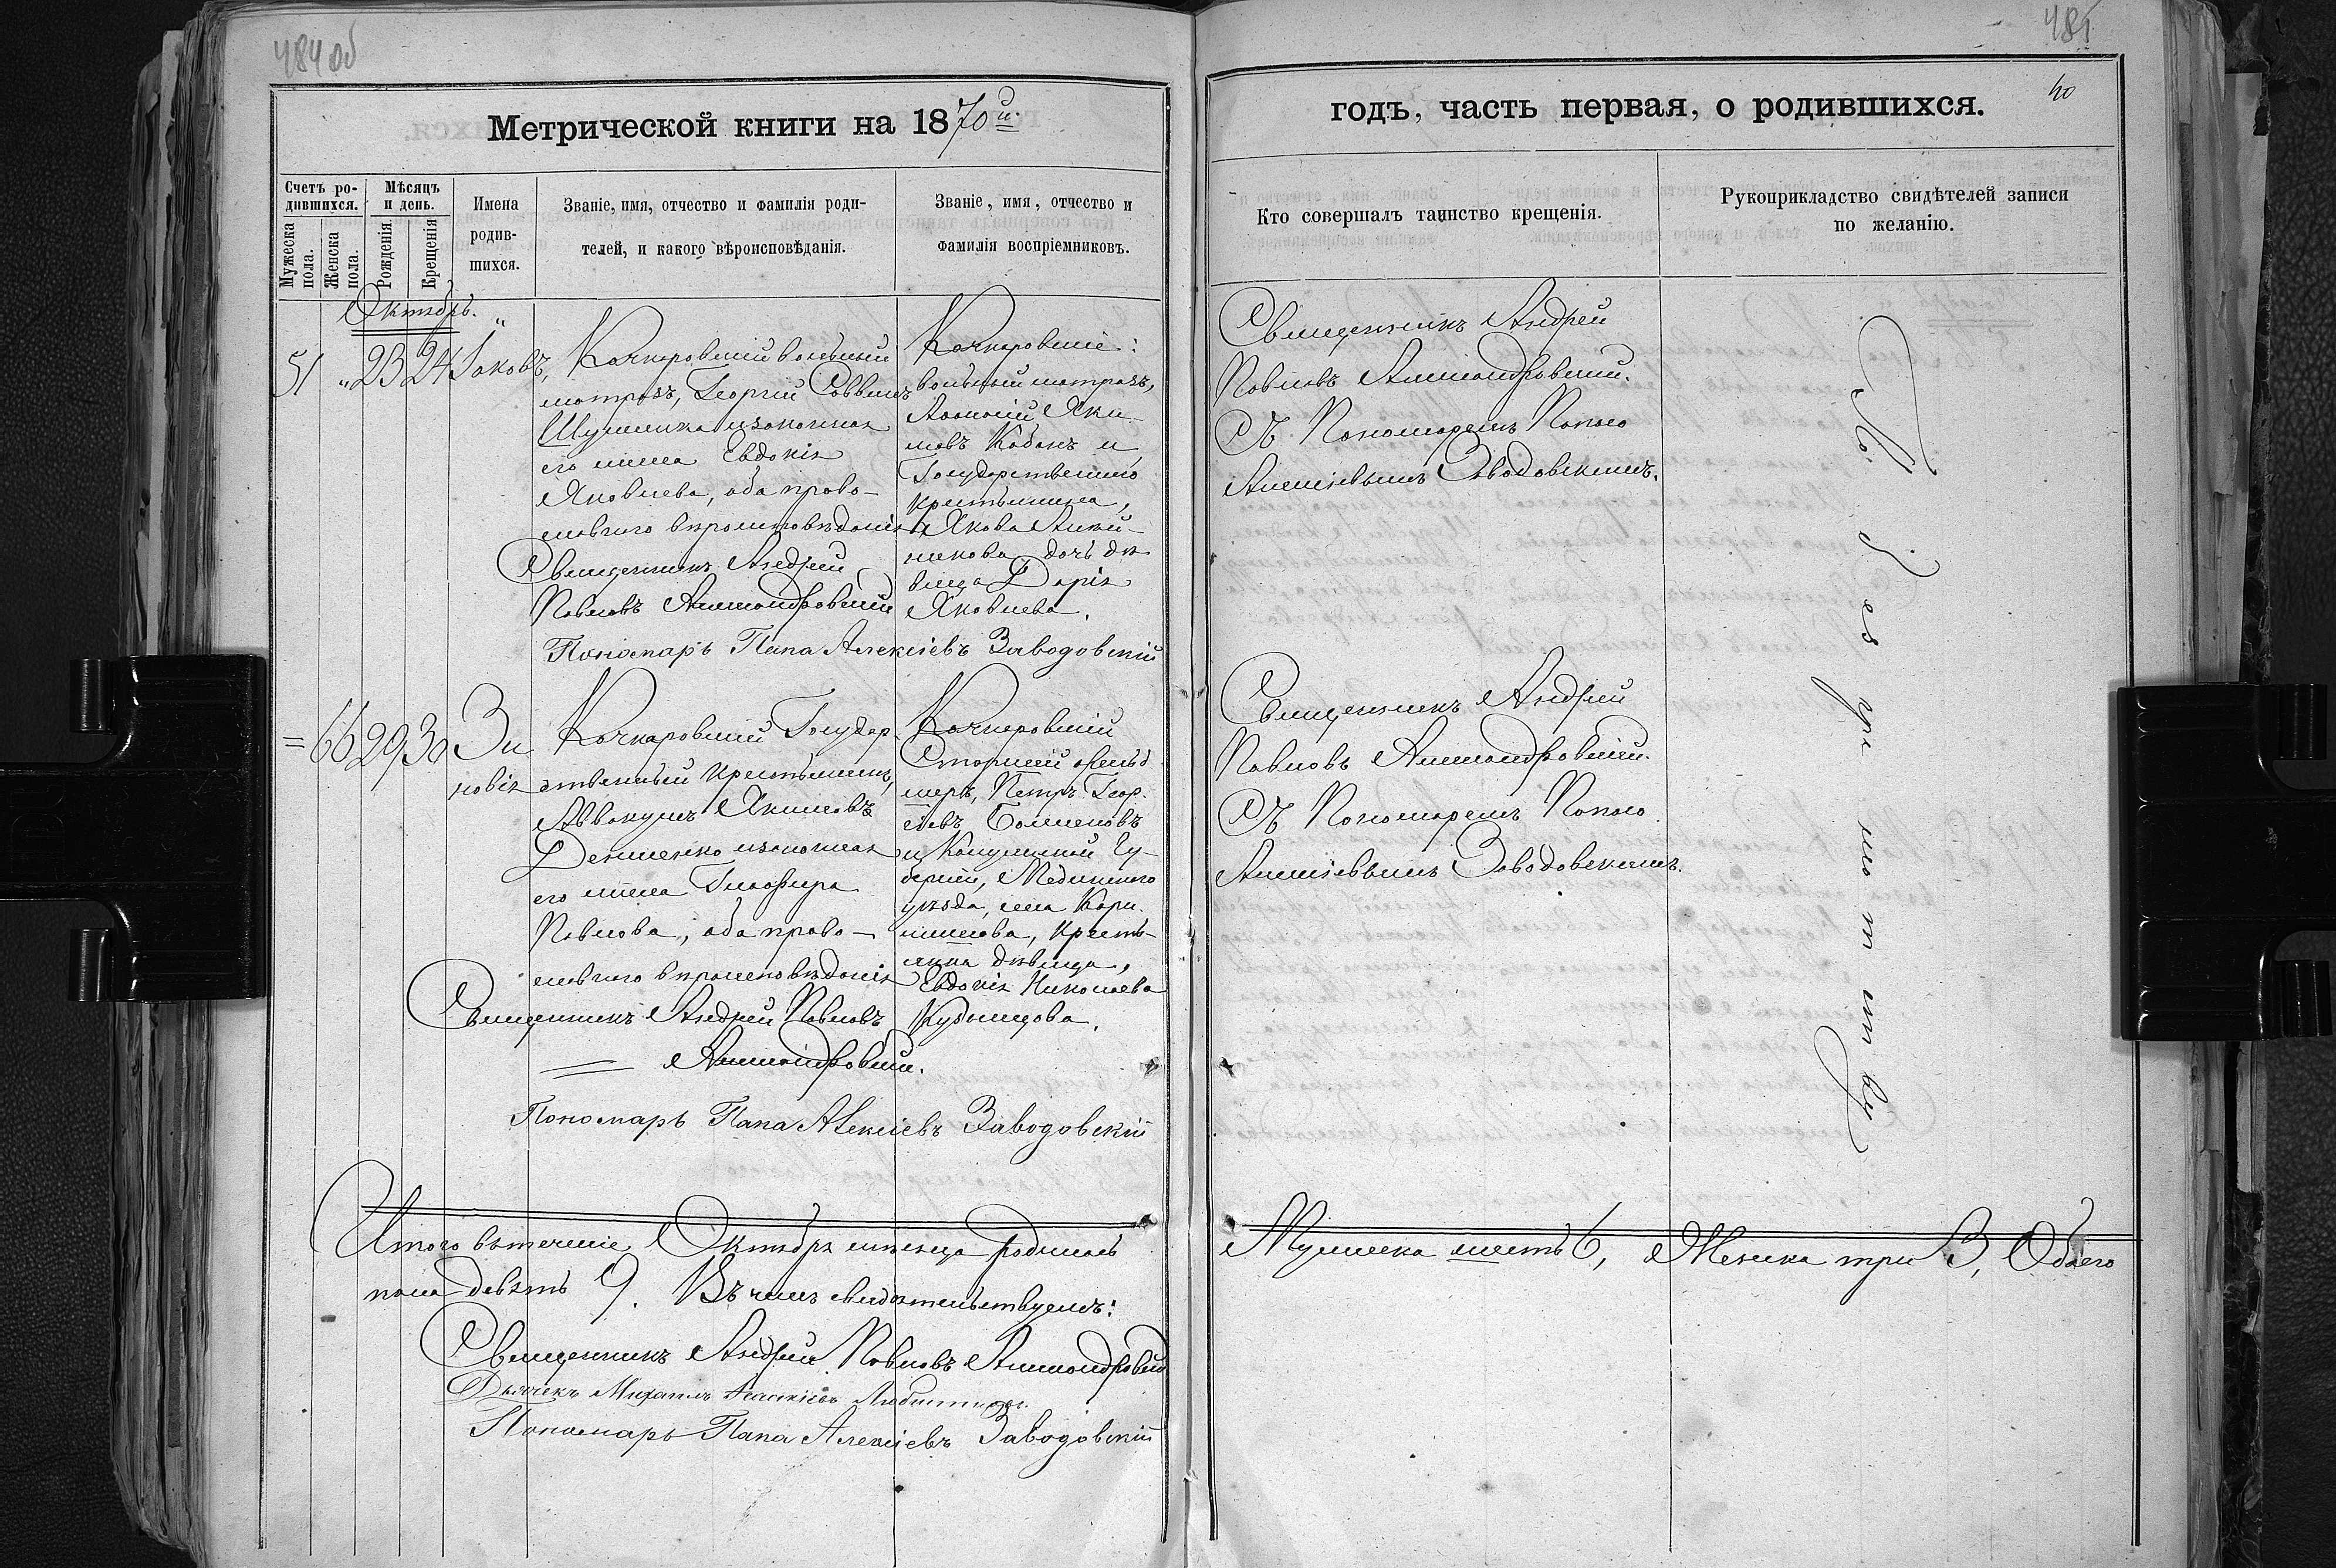 484 об
Метрической книги на 1870й.
Счетъ ро-
дившихся.
Мужеска
пола.
Женска
пола.
Мѣсяцъ
и день.
Рожденія.
Крещенія
Имена
родив-
шихся.
Званіе, имя, отчество и фамилія роди-
телей, и какого вѣроисповѣданія.
Званіе, имя, отчество и
фамилія воспріемниковъ.
Октябрь.
51 " 23 24 Іаковъ,
Качкаровскій вольный
матрозъ, Георгій Саввинъ
Шушлика и законная
его жена Евдокія
Яковлева, оба право-
славнаго вѣроисповѣданія
Священникъ Андрей
Павловъ Александровскій
Пономарь Папа Алексіевъ Заводовскій
Качкаровскіе:
вольный матрозъ,
Аѳанасій Яки-
мовъ Кабакъ и
Государственнаго
крестьянина,
Якова
дочь дѣ
вица Дарія
Яковлева.
= 66 29 30 Зи
новія
Качкаровскій Государ-
ственный крестьянинъ,
Аввакумъ Якимовъ
Демченко и законная
его жена Глафира
Павлова, оба право-
славнаго вѣроисповѣданія
Священникъ Андрей Павловъ
= Александровскій.
Пономарь Папа Алексіевъ Заводовскій
Качкаровскій
Старшій фельд
шеръ, Петръ Геор-
гіевъ
и Калужской Гу-
берніи, Медынскаго
уѣзда, села
Кресть-
янка дѣвица,
Евдокія Николаева
Кудинцова.
Итого въ теченіе Октября мѣсяца родилось
пола девять 9. Въ чемъ свидѣтельствуемъ:
Священникъ Андрей Павловъ Александровскій
Дьячекъ Михаилъ
Пономарь Папа Алексіевъ Заводовскій
485
40
годъ, часть первая, о родившихся.
Кто совершалъ таинство крещенія.
Рукоприкладство свидѣтелей записи
по желанію.
Священникъ Андрей
Павловъ Александровскій.
Съ Пономаремъ Папою
Алексіевымъ Заводовскимъ.
Священникъ Андрей
Павловъ Александровскій.
Съ Пономаремъ Папою
Алексіевымъ Заводовскимъ.
Мужеска шесть 6, Женска три 3, Обоего